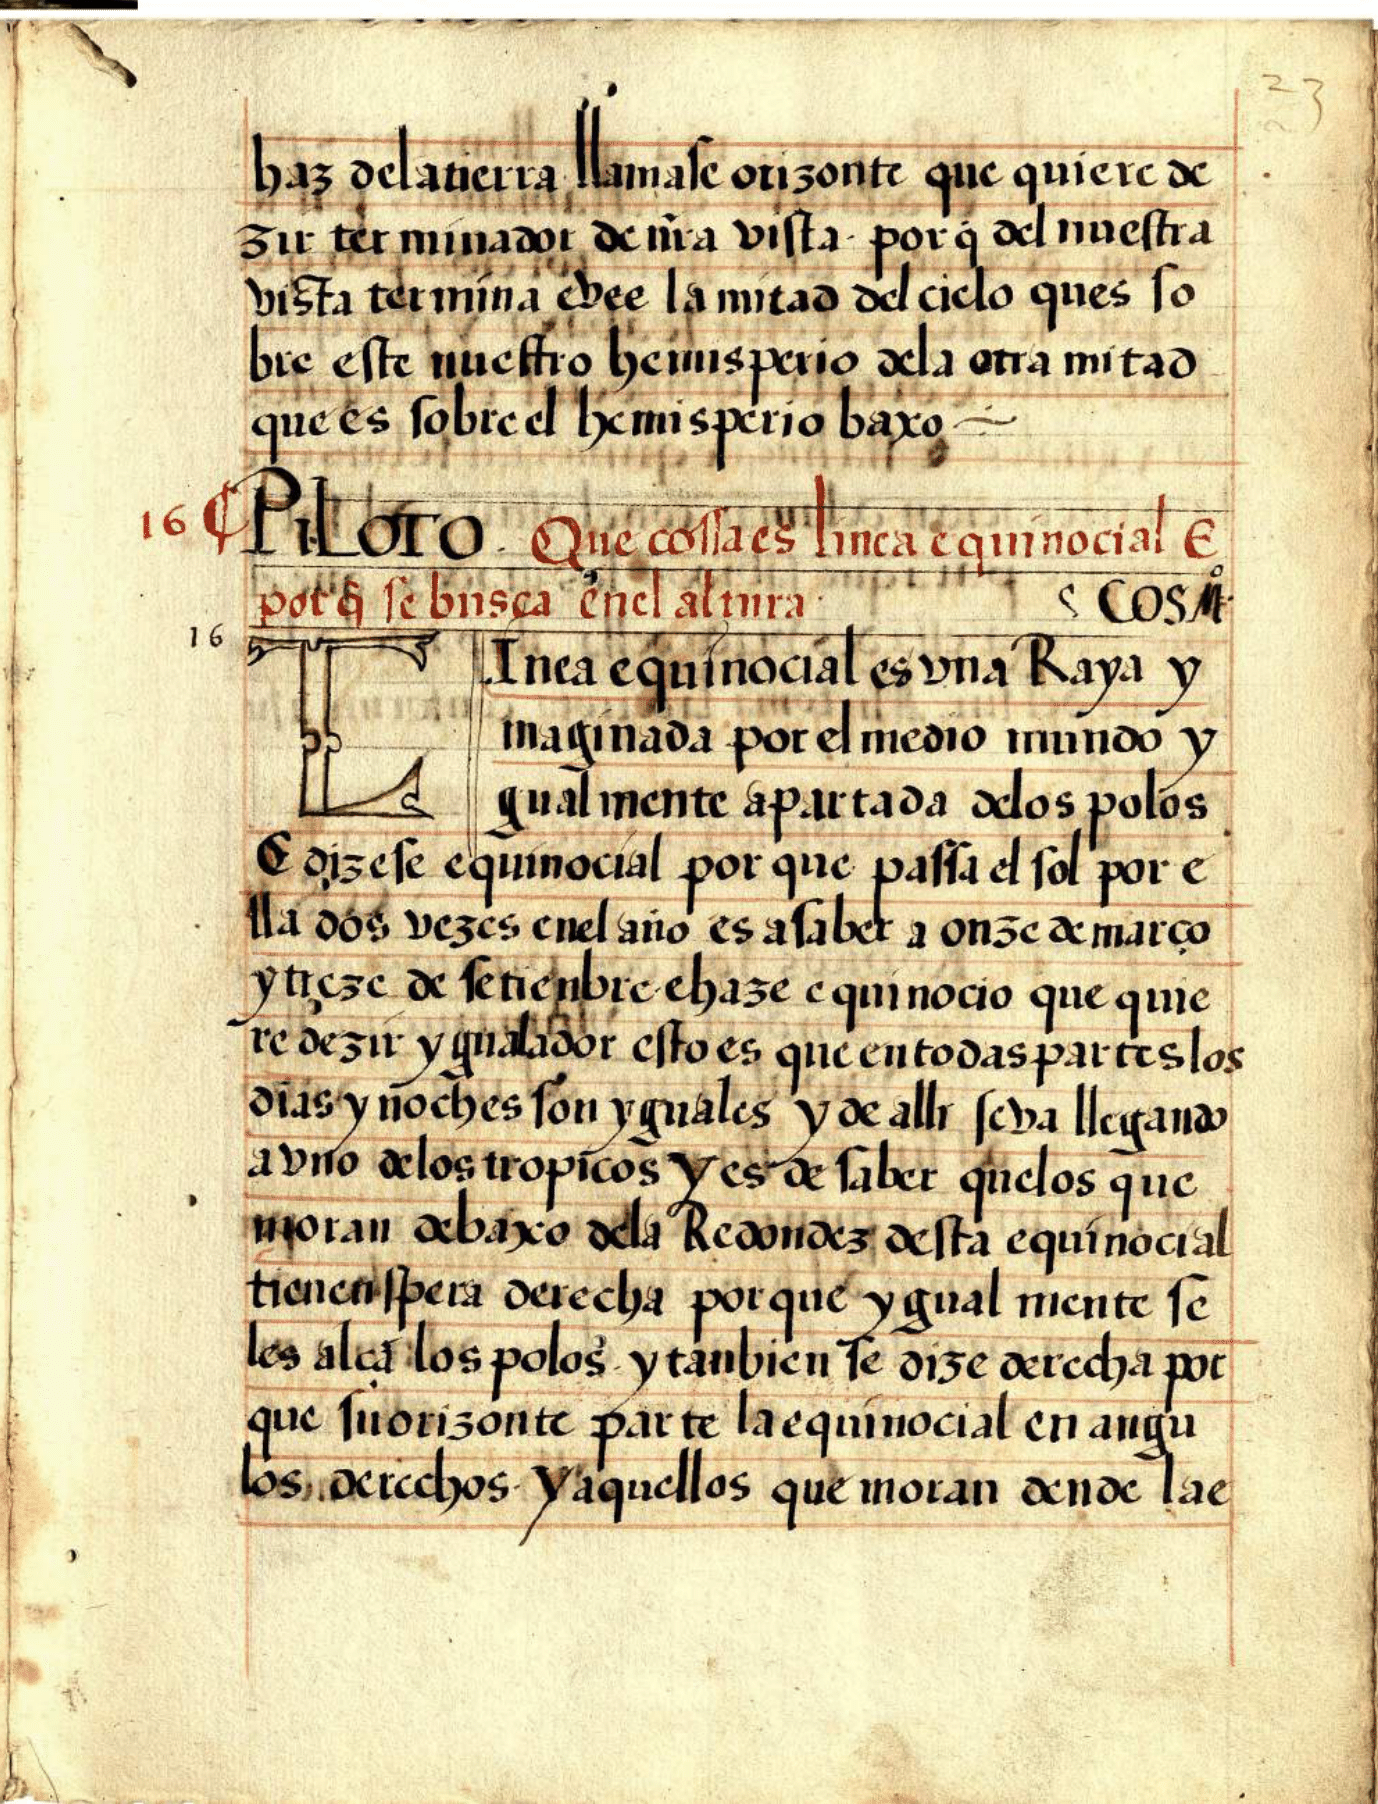 23
haz delatierra llamase orizonte que quiere de
zir terminador de nr̃a vista. porq̃ del nuestra
vista termina e vee la mitad del cielo ques so
bre este nuestro hemisperio dela otra mitad
que es sobre el hemisperio baxo
16 ¶ PILOTO. Que cossa es linea equinocial E
porq̃ se busca enel altura. COSMº.
16
LInea equinocial es vna Raya y
maginada por el medio mundo y
gualmente apartada delos polos
E dizese equinocial por que passa el sol por e
lla dos vezes enel año es asaber a onze de março
y treze de setienbre e haze equinocio que quie
re dezir ygualador esto es que en todas partes los
dias y noches son yguales y de alli seva llegando
a vno delos tropicos y es de saber quelos que
moran debaxo dela Redondez desta equinocial
tienen spera derecha porque ygual mente se
les alçã los polos. y tanbien se dize derecha por
que su orizonte parte la equinocial en angu
los derechos. Y aquellos que moran dende la e